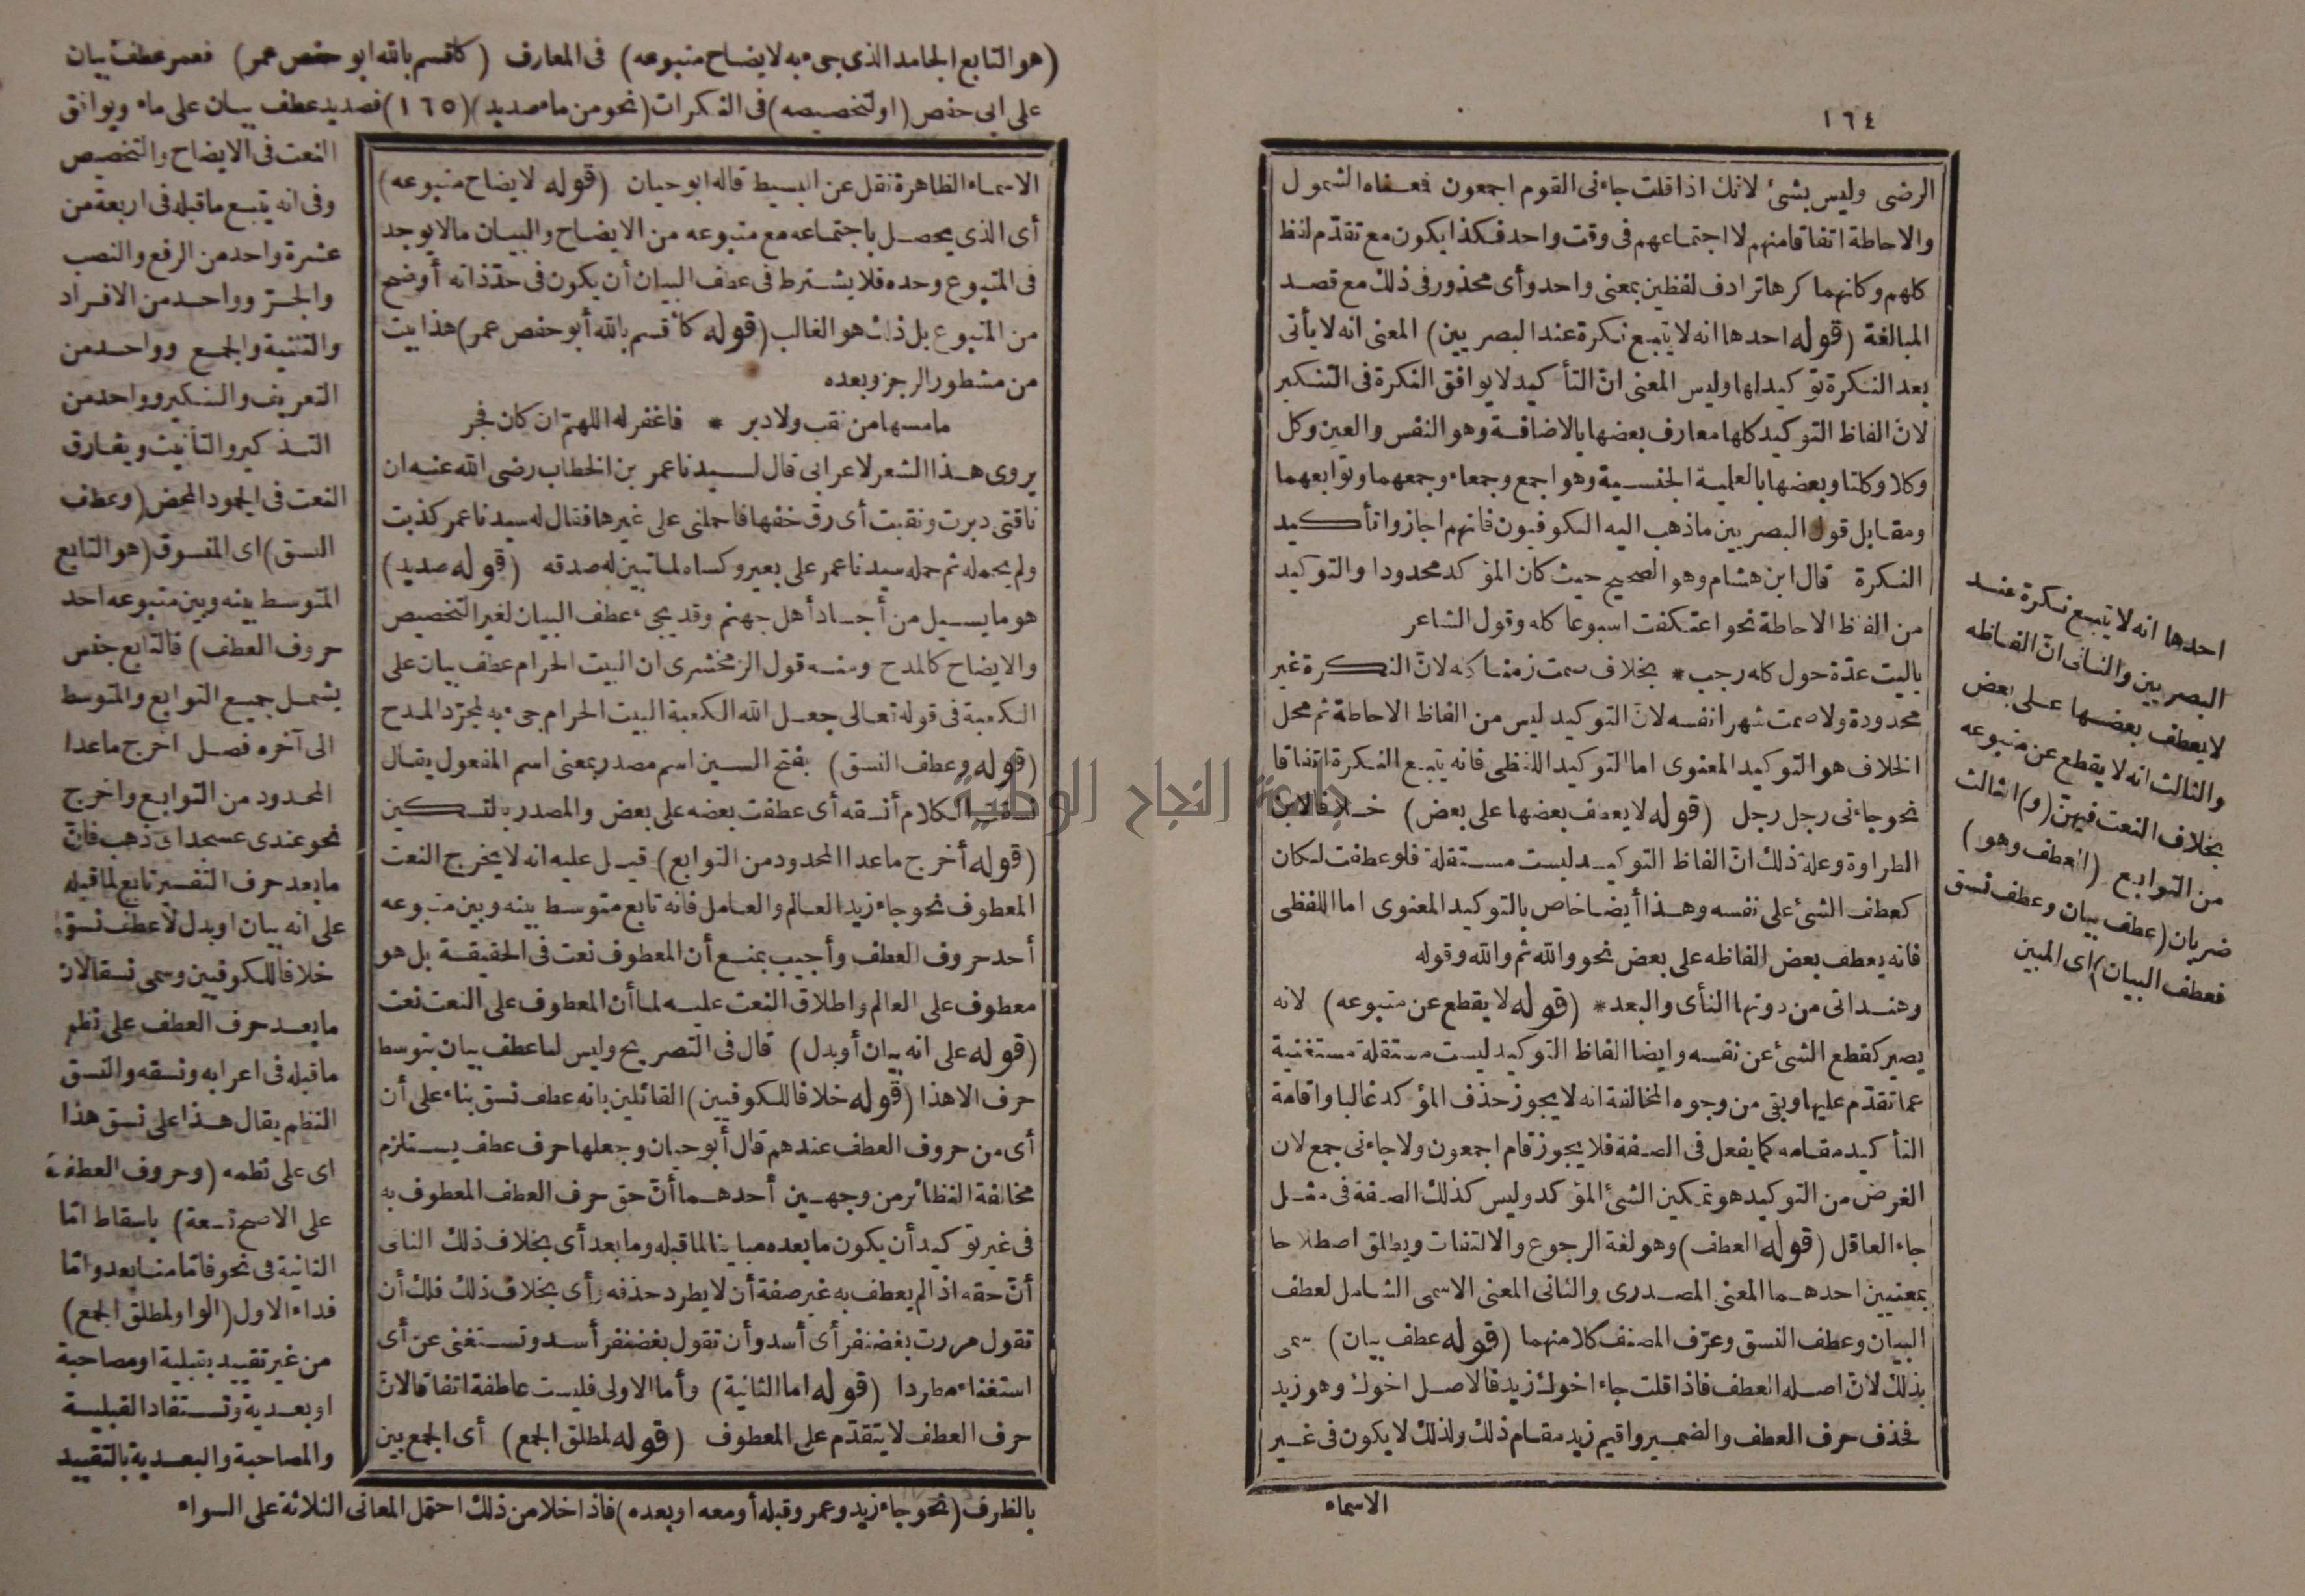 ١٦٤
الرضى وليس بشئ لانك اذا قلت جاءنى القوم اجمعون فمعناه الشمول
والاحاطة اتفاقا منهم لا اجتماعهم فى وقت واحد فكذا يكون مع تقدّم لفظ
كلهم وكانهما كرها ترادف لفظين بمعنى واحد وأى محذور فى ذلك مع قصد
المبالغة (قوله احدها انه لا يتبع نكرة عند البصريين) المعنى انه لا يأتى
بعد النكرة توكيدا لها وليس المعنى انّ التأكيد لا يوافق النكرة فى التنكير
لانّ الفاظ التوكيد كلها معارف بعضها بالاضافة وهو النفس والعين وكل
وكلا وكلتا وبعضها بالعلمية الجنسية وهو اجمع وجمعاء وجمعهما وتوابعهما
ومقابل قول البصريين ما ذهب اليه الكوفيون فانهم اجازوا تأكيد
النكرة قال ابن هشام وهو الصحيح حيث كان المؤكد محدودا والتوكيد
من الفاظ الاحاطة نحو اعتكفت اسبوعا كله وقول الشاعر
ياليت عدّة حول كله رجب * بخلاف صمت زمنا كله لانّ النكرة غير
محدودة ولا صمت شهرا نفسه لانّ التوكيد ليس من الفاظ الاحاطة ثم محل
الخلاف هو التوكيد المعنوى اما التوكيد اللفظى فانه يتبع النكرة اتفاقا
نحو جاءنى رجل رجل (قوله لا يعطف بعضها على بعض) خلافا لابن
الطراوة وعلة ذلك انّ الفاظ التوكيد ليست مستقلة فلو عطفت لكان
كعطف الشئ على نفسه وهذا أيضا خاص بالتوكيد المعنوى اما اللفظى
فانه يعطف بعض الفاظه على بعض نحو والله ثم والله وقوله
وهند اتى من دونها النأى والبعد * (قوله لا يقطع عن متبوعه) لانه
يصير كقطع الشئ عن نفسه وايضا الفاظ التوكيد ليست مستقلة مستغنية
عما تقدّم عليها وبقى من وجوه المخالفة انه لا يجوز حذف المؤكد غالبا واقامة
التأكيد مقامه كما يفعل فى الصفة فلا يجوز قام اجمعون ولا جاءنى جمع لان
الغرض من التوكيد هو تمكين الشئ المؤكد وليس كذلك الصفة فى مثل
جاء العاقل (قوله العطف) وهو لغة الرجوع والالتفات ويطلق اصطلاحا
بمعنيين احدهما المعنى المصدرى والثانى المعنى الاسمى الشامل لعطف
البيان وعطف النسق وعرّف المصنف كلا منهما (قوله عطف بيان) سمى
بذلك لانّ اصله العطف فاذا قلت جاء اخوك زيد فالاصل اخوك وهو زيد
فحذف حرف العطف والضمير واقيم زيد مقام ذلك ولذلك لا يكون فى غير
الاسماء
احدها انه لا يتبع نكرة عند
البصريين والثانى انّ الفاظه
لا يعطف بعضها على بعض
والثالث انه لا يقطع عن متبوعه
بخلاف النعت فيهنّ (و) الثالث
من التوابع (العطف وهو)
ضربان (عطف بيان وعطف نسق
فعطف البيان) اى المبين
(هو التابع الجامد الذى جىء به لايضاح متبوعه) فى المعارف (كاقسم بالله ابو حفص عمر) فعمر عطف بيان
على ابى حفص (او لتخصيصه) فى النكرات (نحو من ماء صديد) (١٦٥) فصديد عطف بيان على ماء ويوافق
النعت فى الايضاح والتخصيص
وفى انه يتبع ما قبله فى اربعة من
عشرة واحد من الرفع والنصب
والجرّ وواحد من الافراد
والتثنية والجمع وواحد من
التعريف والتنكير وواحد من
التذكير والتأنيث ويفارق
النعت فى الجمود المحض (وعطف
النسق) اى المنسوق (هو التابع
المتوسط بينه وبين متبوعه احد
حروف العطف) فالتابع جنس
يشمل جميع التوابع والمتوسط
الى آخره فصل اخرج ماعدا
المحدود من التوابع واخرج
نحو عندى عسجد اى ذهب فانّ
مابعد حرف التفسير تابع لما قبله
على انه بيان او بدل لا عطف نسق
خلافا للكوفيين وسمى نسقا لان
مابعد حرف العطف على نظم
ماقبله فى اعرابه ونسقه والنسق
النظم يقال هذا على نسق هذا
اى على نظمه (وحروف العطف
على الاصح تسعة) باسقاط امّا
الثانية فى نحو فامّا منا بعد وامّا
فداء الاول (الواو لمطلق الجمع)
من غير تقييد بقبلية او مصاحبة
او بعدية وتستفاد القبلية
والمصاحبة والبعدية بالتقييد
بالظرف (نحو جاء زيد وعمر وقبله أو معه او بعده) فاذا خلا من ذلك احتمل المعانى الثلاثة على السواء
الاسماء الظاهرة نقل عن البسيط قاله ابو حيان (قوله لايضاح متبوعه)
أى الذى يحصل باجتماعه مع متبوعه من الايضاح والبيان مالا يوجد
فى المتبوع وحده فلا يشترط فى عطف البيان أن يكون فى حدّ ذاته أوضح
من المتبوع بل ذلك هو الغالب (قوله كأقسم بالله أبو حفص عمر) هذا بيت
من مشطور الرجز وبعده
مامسها من نقب ولا دبر * فاغفر له اللهمّ ان كان فجر
يروى هذا الشعر لاعرابى قال لسيدنا عمر بن الخطاب رضى الله عنه ان
ناقتى دبرت ونقبت أى رق خفها فاحملنى على غيرها فقال له سيدنا عمر كذبت
ولم يحمله ثم حمله سيدنا عمر على بعير وكساه لما تبين له صدقه (قوله صديد)
هو ما يسيل من أجساد أهل جهنم وقد يجىء عطف البيان لغير التخصيص
والايضاح كالمدح ومنه قول الزمخشرى ان البيت الحرام عطف بيان على
الكعبة فى قوله تعالى جعل الله الكعبة البيت الحرام جىء به لمجرّد المدح
(قوله وعطف النسق) بفتح السين اسم مصدر بمعنى اسم المفعول يقال
نسقت الكلام أنسقه أى عطفت بعضه على بعض والمصدر بالتسكين
(قوله أخرج ماعدا المحدود من التوابع) قيل عليه انه لا يخرج النعت
المعطوف نحو جاء زيد العالم والعامل فانه تابع متوسط بينه وبين متبوعه
أحد حروف العطف وأجيب بمنع أن المعطوف نعت فى الحقيقة بل هو
معطوف على العالم واطلاق النعت عليه لما أن المعطوف على النعت نعت
(قوله على انه بيان أو بدل) قال فى التصريح وليس لنا عطف بيان بتوسط
حرف الا هذا (قوله خلافا للكوفيين) القائلين بانه عطف نسق بناء على أن
أى من حروف العطف عندهم قال أبو حيان وجعلها حرف عطف يستلزم
مخالفة النظائر من وجهين أحدهما أنّ حق حرف العطف المعطوف به
فى غير توكيد أن يكون ما بعده مباينا لما قبله وما بعد أى بخلاف ذلك الثانى
أنّ حقه اذا لم يعطف به غير صفة أن لا يطرد حذفه وأى بخلاف ذلك فلك أن
تقول مررت بغضنفر أى أسد وأن تقول بغضنفر أسد وتستغنى عن أى
استغناء مطردا (قوله اما الثانية) وأما الاولى فليست عاطفة اتفاقا لانّ
حرف العطف لا يتقدّم على المعطوف (قوله لمطلق الجمع) أى الجمع بين
جامعة النجاح الوطنية